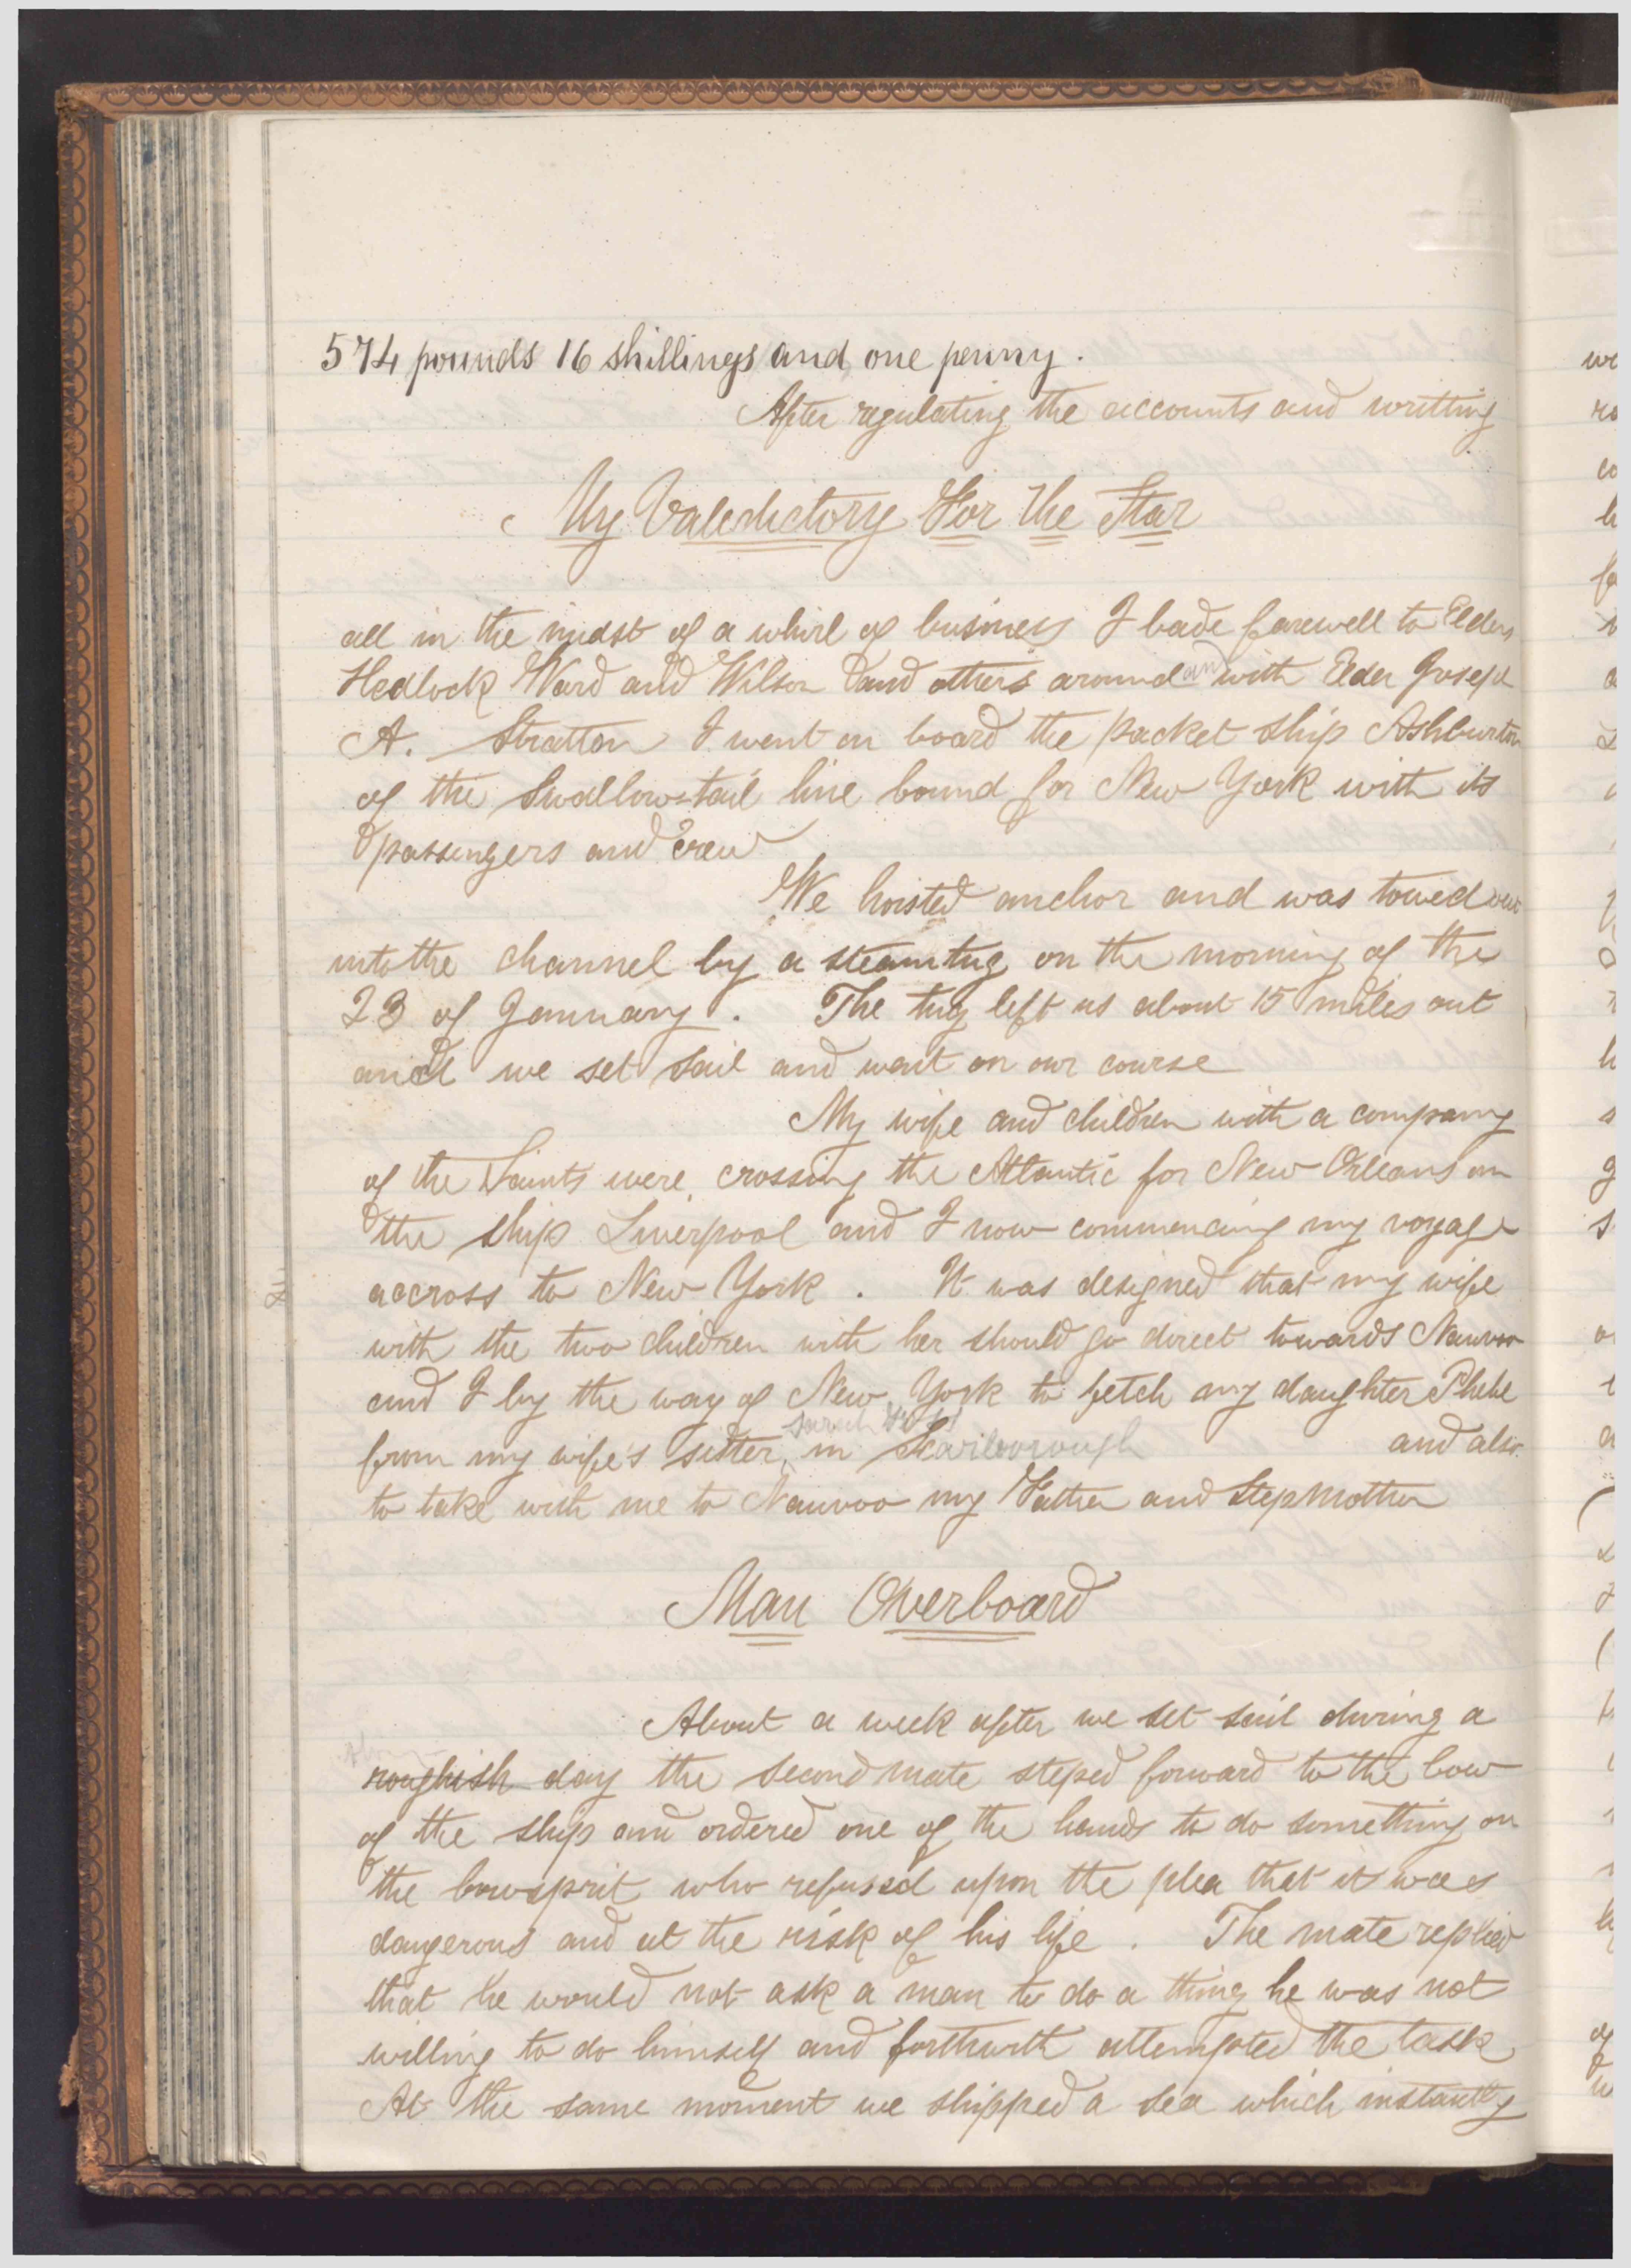 574 pounds 16 shillings and one penny.
After regulating the accounts and writting
My Valedictory For The Star
all in the midst of a whirl of business I bade farewell to Elders
Hedlock Ward and Wilson and others around and with Elder Joseph
A. Stratton I went on board the packet ship Ashburton
of the Swallow-tail line bound for New York with its
passengers and crew
We hoisted anchor and was towed out
into the channel by a steamtug on the morning of the
23 of January. The tug left us about 15 miles out
and we set sail and went on our course
My wife and children with a company
of the Saints were crossing the Atlantic for New Orleans on
the ship Liverpool and I now commencing my voyage
accross to New York. It was designed that my wife
with the two children with her should go direct towards Nauvoo
and I by the way of New York to fetch my daughter Phebe
Sarah
from my wife's sister, in Scarborough and also
to take with me to Nauvoo my Father and Step Mother
Man Overboard
About a week after we set sail during a
roughish day the second mate steped forward to the bow
of the ship and ordered one of the hands to do something on
the bowsprit who refused upon the plea that it was
dangerous and at the risk of his life. The mate replied
that he would not ask a man to do a thing he was not
willing to do himself and forthwith attempted the task
At the same moment we shipped a sea which instantly